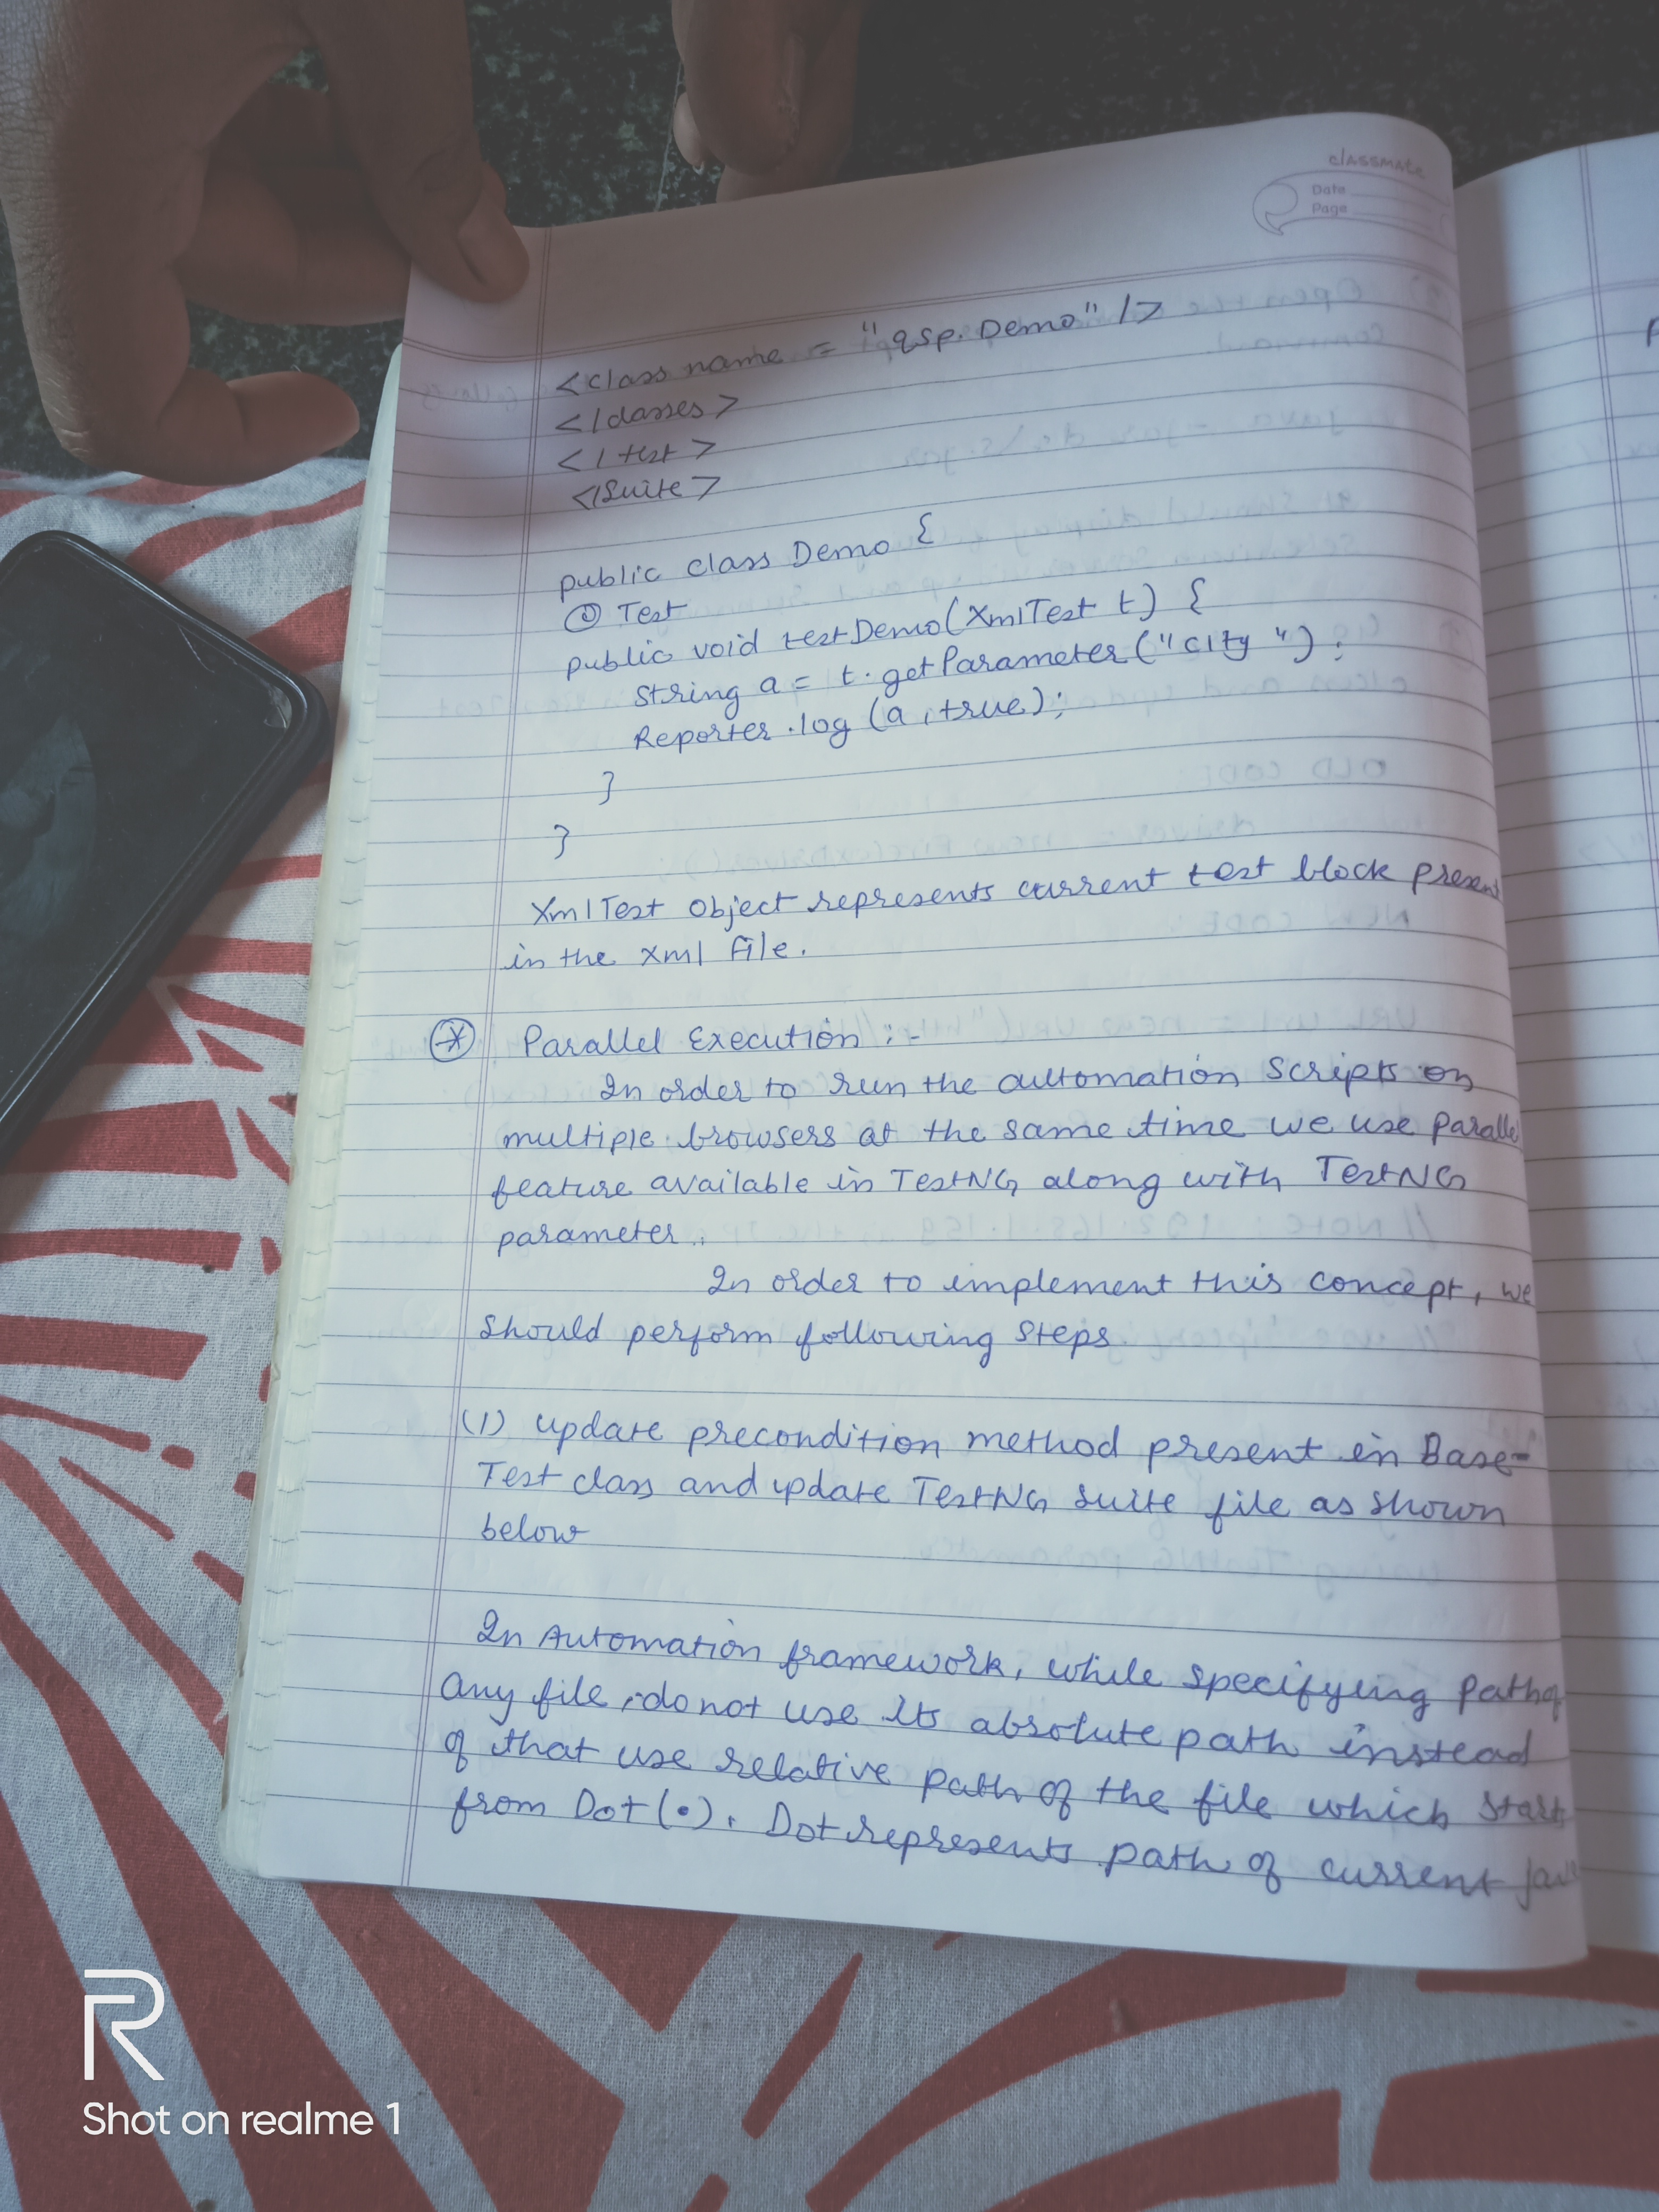 classmate
Date
Page
<class name = "qsp.Demo" />
</classes>
</test>
</Suite>
public class Demo {
@ Test
public void testDemo(XmlTest t) {
String a = t.getParameter("city");
Reporter.log(a, true);
}
}
XmlTest object represents current test block present
in the xml file.
Parallel Execution :-
In order to run the automation Scripts on
multiple browsers at the same time we use parallel
feature available in TestNG along with TestNG
parameter.
In order to implement this concept, we
should perform following steps
(1) update precondition method present in Base-
Test class and update TestNG suite file as shown
below
In Automation framework, while specifying path of
any file, do not use its absolute path instead
of that use relative path of the file which start
from Dot (.). Dot represents path of current
R
Shot on realme 1